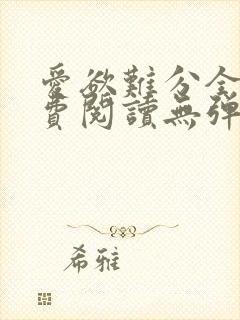 愛欲難分全
費閱讀無彈
希雅